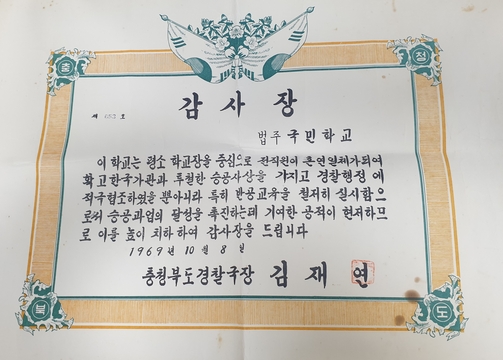 충 청
제 호
감사장
법주 국민학교
이 학교는 평소 학교장을 중심으로 전직원이 혼연일체가되여
확고한국가관과 투철한 승공사상을 가지고 경찰행정 에
적극협조하였을 뿐아니라 특히 반공교육을 철저히 실시함으
로써 승공과업의 달성을 촉진하는데 거여한 공적이 현저하므
로 이를 높이 치하 하여 감사장을 드립니다
1969년 10월 8일
충청북도경찰국장 김재연
북 도